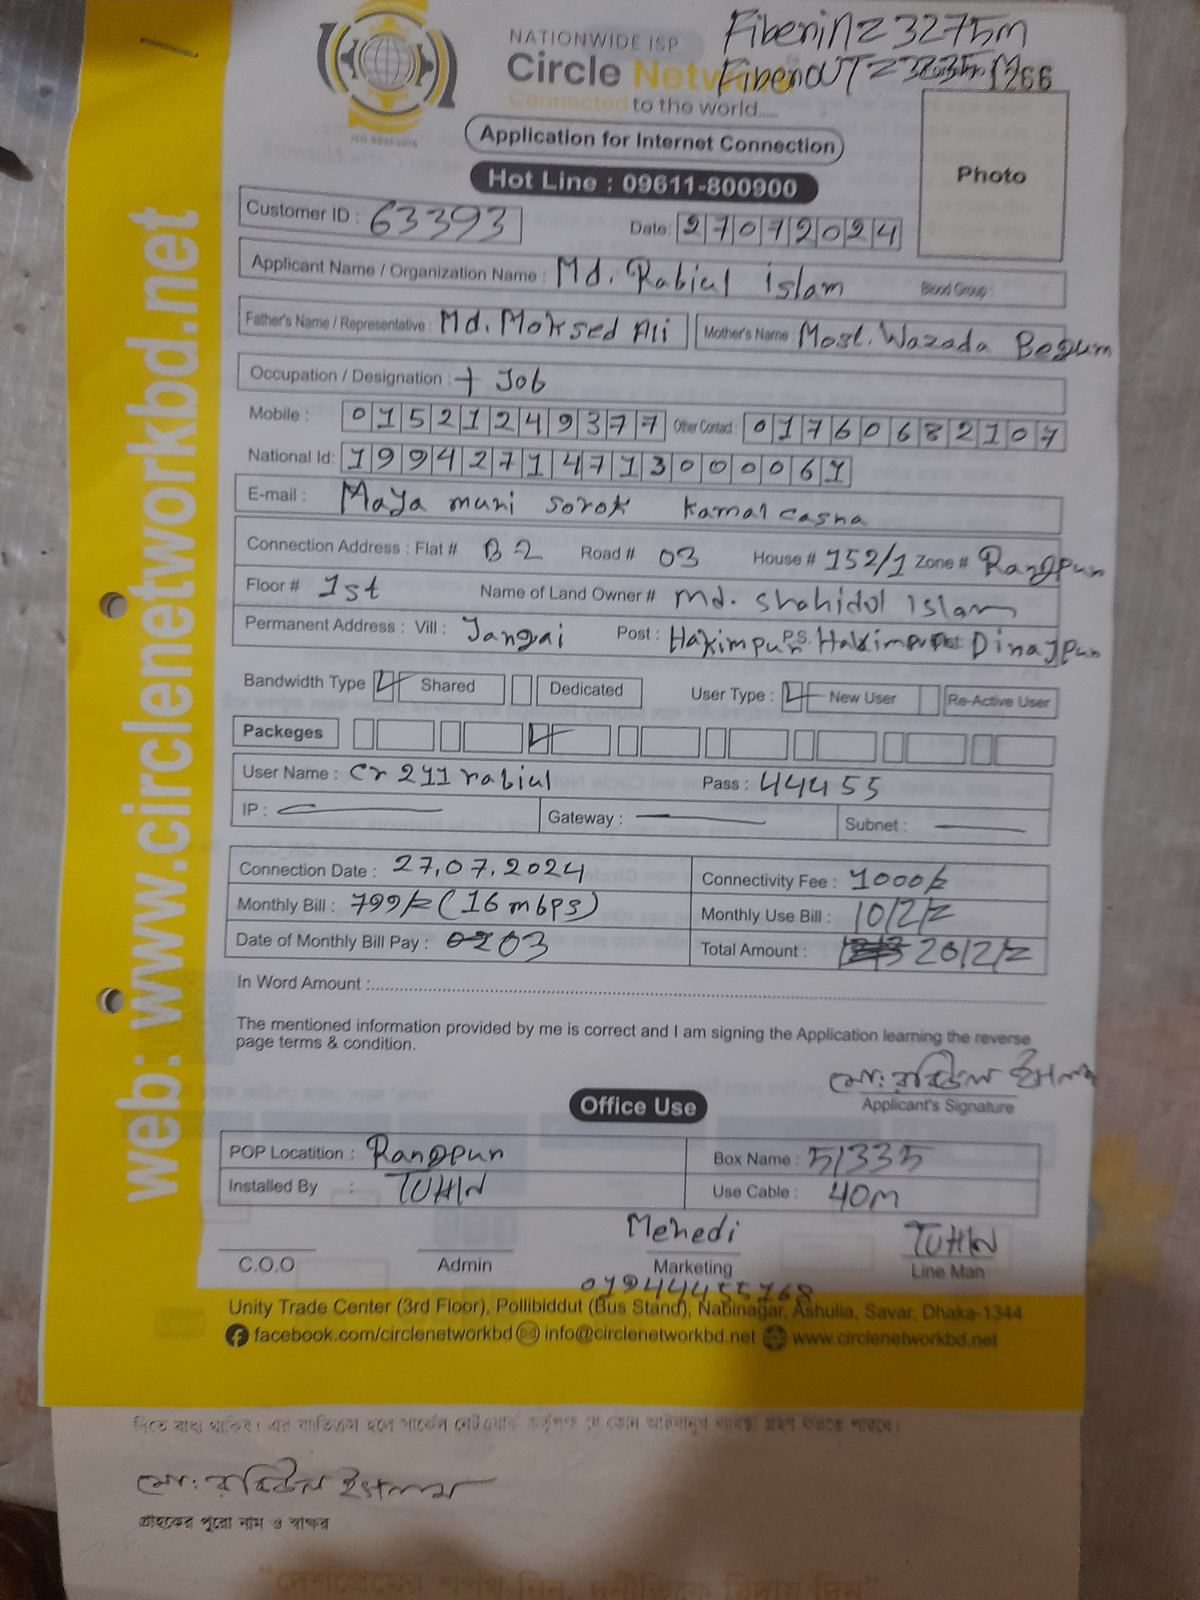 NATIONWIDE ISP
Circle Network
Connected to the world.....
Fiber in = 3275m
Fiber OUT =
Application for Internet Connection
Hot Line : 09611-800900
Photo
Customer ID : 63393 Date: 27072024
Applicant Name / Organization Name : Md. Rabiul islam Blood Group :
Father's Name / Representative : Md. Moksed Ali Mother's Name : Most. Wazada Begum
Occupation / Designation : Job
Mobile : 01521249377 Other Contact : 01760682107
National Id: 19942714713000061
E-mail : Maya muni sorok kamal casna
Connection Address : Flat # B2 Road # 03 House # 152/1 Zone # Rangpur
Floor # 1st Name of Land Owner # Md. Shahidol Islam
Permanent Address : Vill : Jangai Post : Hakimpur P.S. Hakimpur Dist: Dinajpur
Bandwidth Type Shared Dedicated User Type : New User Re-Active User
Packeges
User Name : cr211rabiul Pass : 44455
IP : Gateway : Subnet :
Connection Date : 27.07.2024 Connectivity Fee : 1000/=
Monthly Bill : 799/= (16 mbps) Monthly Use Bill : 10/2/=
Date of Monthly Bill Pay : 03 Total Amount : 20/2/=
In Word Amount :
The mentioned information provided by me is correct and I am signing the Application learning the reverse
page terms & condition.
মো: রবিউল ইসলাম
Applicant's Signature
Office Use
POP Locatition : Rangpur Box Name : 51335
Installed By : TUHIN Use Cable : 40M
Mehedi TUHIN
C.O.O Admin Marketing Line Man
Unity Trade Center (3rd Floor), Pollibiddut (Bus Stand), Nabinagar, Ashulia, Savar, Dhaka-1344
facebook.com/circlenetworkbd info@circlenetworkbd.net www.circlenetworkbd.net
web: www.circlenetworkbd.net
দিতে বাধ্য থাকিব। এর ব্যতিক্রম হলে সার্কেল নেটওয়ার্ক কর্তৃপক্ষ যে কোন আইনানুগ ব্যবস্থা গ্রহণ করতে পারবে।
মো: রবিউল ইসলাম
গ্রাহকের পুরো নাম ও স্বাক্ষর
“দেশপ্রেমের শপথ নিন, দুর্নীতিকে বিদায় দিন”